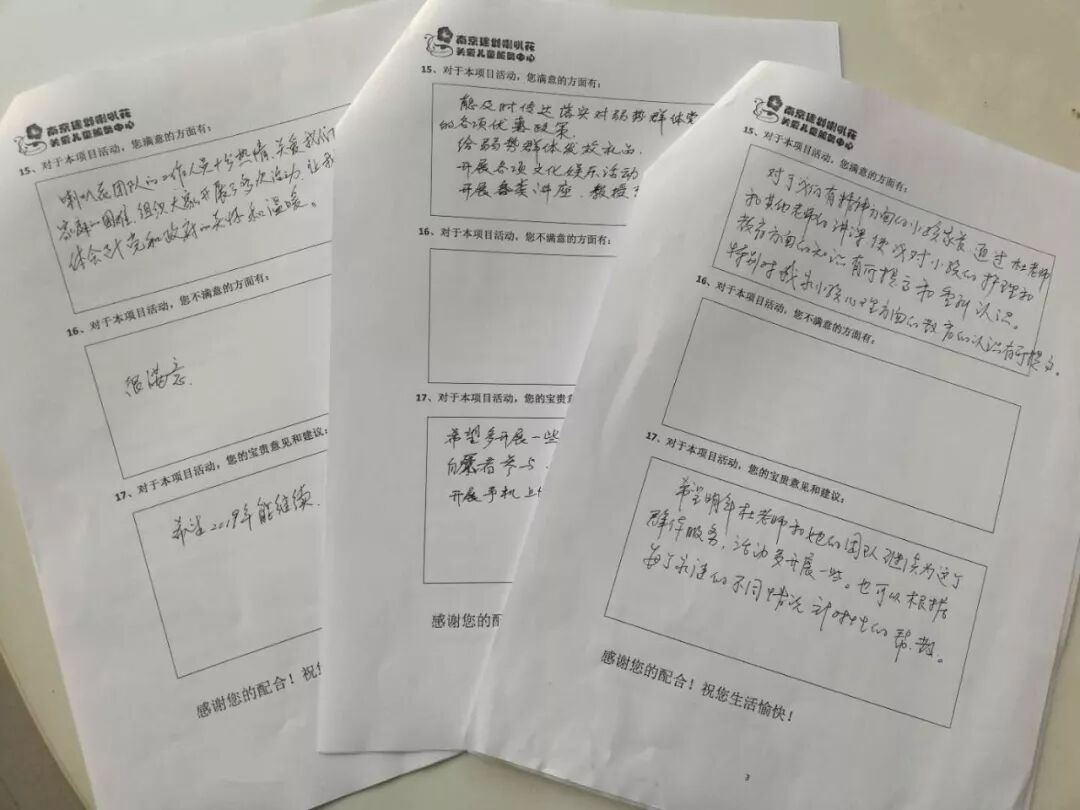 南京建邺喇叭花
关爱儿童服务中心
15、对于本项目活动，您满意的方面有：
喇叭花团队的工作人员十分热情、关爱我们
家庭的困难，组织大家开展了多次活动，让我
体会到党和政府的关怀和温暖。
16、对于本项目活动，您不满意的方面有：
很满意.
17、对于本项目活动，您的宝贵意见和建议：
希望2019年能继续.
感谢您的配合！祝您
南京建邺喇叭花
关爱儿童服务中心
15、对于本项目活动，您满意的方面有：
能及时传达落实对弱势群体
的各项优惠政策.
给弱势群体发放礼品.
开展各项文化娱乐活动
开展各类讲座.教授
16、对于本项目活动，您不满意的方面有：
17、对于本项目活动，您的宝贵意
希望多开展一些
参与.
开展手机上
感谢您的配
南京建邺喇叭花
关爱儿童服务中心
15、对于本项目活动，您满意的方面有：
对于我们有精神方面的小孩家长通过杜老师
和其他老师的讲课使我对小孩的护理和
教育方面的知识有所提高和重新认识。
特别对我家小孩心理方面的教育的认识有所提高。
16、对于本项目活动，您不满意的方面有：
17、对于本项目活动，您的宝贵意见和建议：
希望明年杜老师和她的团队继续为这个
群体服务，活动多开展一些。也可以根据
每个家庭的不同情况针对性的帮教。
感谢您的配合！祝您生活愉快！
3